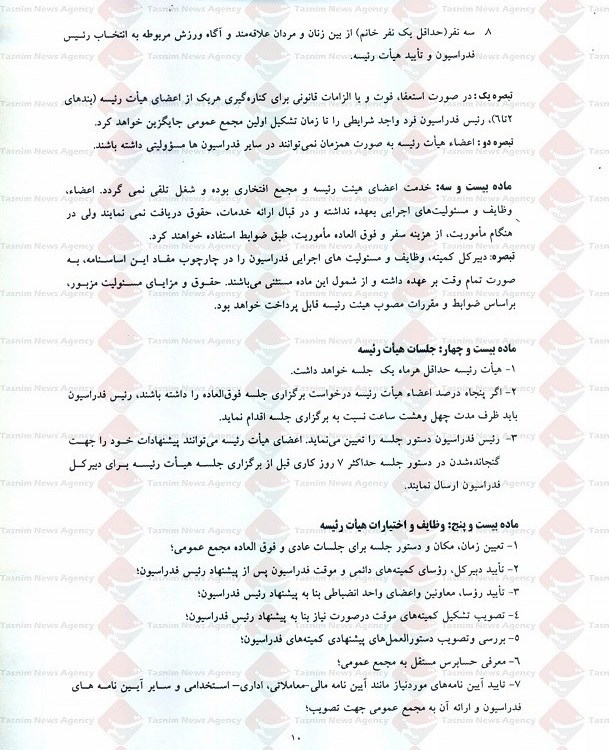 ۸ سه نفر(حداقل یک نفر خانم) از بین زنان و مردان علاقه‌مند و آگاه ورزش مربوطه به انتخاب رئیس
فدراسیون و تأیید هیأت رئیسه.
تبصره یک: در صورت استعفا، فوت و یا الزامات قانونی برای کناره‌گیری هریک از اعضای هیأت رئیسه (بندهای
۲تا۶)، رئیس فدراسیون فرد واجد شرایطی را تا زمان تشکیل اولین مجمع عمومی جایگزین خواهد کرد.
تبصره دو: اعضاء هیأت رئیسه به صورت همزمان نمی‌توانند در سایر فدراسیون ها مسؤولیتی داشته باشند.
ماده بیست و سه: خدمت اعضای هیئت رئیسه و مجمع افتخاری بوده و شغل تلقی نمی گردد. اعضاء،
وظایف و مسئولیت‌های اجرایی بعهده نداشته و در قبال ارائه خدمات، حقوق دریافت نمی نمایند ولی در
هنگام مأموریت، از هزینه سفر و فوق العاده مأموریت، طبق ضوابط استفاده خواهند کرد.
تبصره: دبیرکل کمیته، وظایف و مسئولیت های اجرایی فدراسیون را در چارچوب مفاد این اساسنامه، به
صورت تمام وقت بر عهده داشته و از شمول این ماده مستثنی می‌باشند. حقوق و مزایای مسئولیت مزبور،
براساس ضوابط و مقررات مصوب هیئت رئیسه قابل پرداخت خواهد بود.
ماده بیست و چهار: جلسات هیأت رئیسه
۱- هیأت رئیسه حداقل هرماه یک جلسه خواهد داشت.
۲- اگر پنجاه درصد اعضاء هیأت رئیسه درخواست برگزاری جلسه فوق‌العاده را داشته باشند، رئیس فدراسیون
باید ظرف مدت چهل وهشت ساعت نسبت به برگزاری جلسه اقدام نماید.
۳- رئیس فدراسیون دستور جلسه را تعیین می‌نماید. اعضای هیأت رئیسه می‌توانند پیشنهادات خود را جهت
گنجانده‌شدن در دستور جلسه حداکثر ۷ روز کاری قبل از برگزاری جلسه هیأت رئیسه برای دبیرکل
فدراسیون ارسال نمایند.
ماده بیست و پنج: وظایف و اختیارات هیأت رئیسه
۱- تعیین زمان، مکان و دستور جلسه برای جلسات عادی و فوق العاده مجمع عمومی؛
۲- تأیید دبیرکل، رؤسای کمیته‌های دائمی و موقت فدراسیون پس از پیشنهاد رئیس فدراسیون؛
۳- تأیید رؤسا، معاونین واعضای واحد انضباطی بنا به پیشنهاد رئیس فدراسیون؛
۴- تصویب تشکیل کمیته‌های موقت درصورت نیاز بنا به پیشنهاد رئیس فدراسیون؛
۵- بررسی وتصویب دستورالعمل‌های پیشنهادی کمیته‌های فدراسیون؛
۶- معرفی حسابرس مستقل به مجمع عمومی؛
۷- تایید آیین نامه‌های موردنیاز مانند آیین نامه مالی-معاملاتی، اداری- استخدامی و سایر آیین نامه های
فدراسیون و ارائه آن به مجمع عمومی جهت تصویب؛
۱۰
Tasnim News Agency